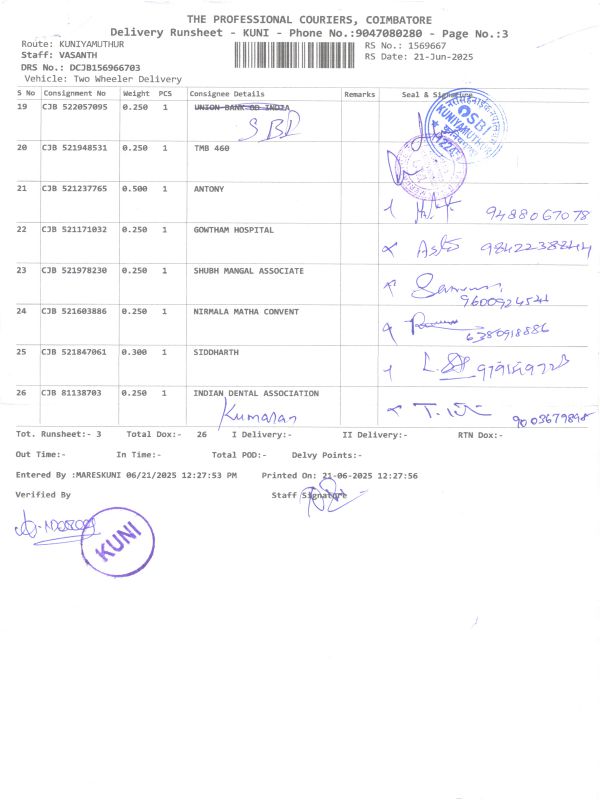 THE PROFESSIONAL COURIERS, COIMBATORE
Delivery Runsheet - KUNI - Phone No.:9047080280 - Page No.:3
Route: KUNIYAMUTHUR RS No.: 1569667
Staff: VASANTH RS Date: 21-Jun-2025
DRS No.: DCJB156966703
Vehicle: Two Wheeler Delivery
S No Consignment No Weight PCS Consignee Details Remarks Seal & Signature
19 CJB 522057095 0.250 1 UNION BANK OD INDIA
SBI
SBI
KUNIYAMUTHUR
20 CJB 521948531 0.250 1 TMB 460
21 CJB 521237765 0.500 1 ANTONY
9488067078
22 CJB 521171032 0.250 1 GOWTHAM HOSPITAL
23 CJB 521978230 0.250 1 SHUBH MANGAL ASSOCIATE
24 CJB 521603886 0.250 1 NIRMALA MATHA CONVENT
6380918886
25 CJB 521847061 0.300 1 SIDDHARTH
26 CJB 81138703 0.250 1 INDIAN DENTAL ASSOCIATION
Kumaran 9003679898
Tot. Runsheet:- 3 Total Dox:- 26 I Delivery:- II Delivery:- RTN Dox:-
Out Time:- In Time:- Total POD:- Delvy Points:-
Entered By :MARESKUNI 06/21/2025 12:27:53 PM Printed On: 21-06-2025 12:27:56
Verified By Staff Signature
KUNI